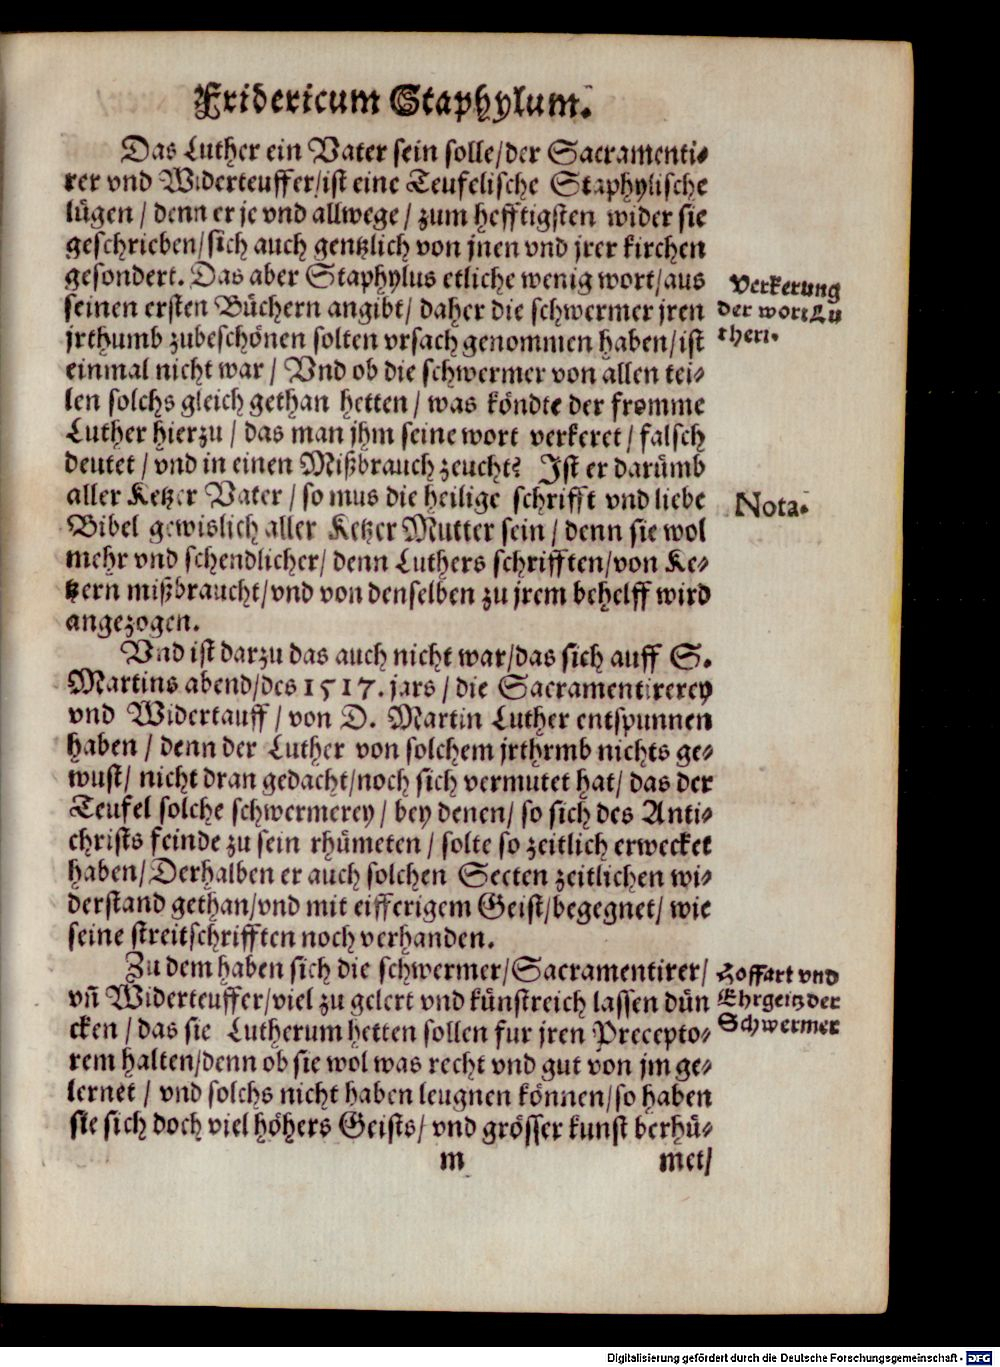 Fridericum Staphylum.
Das Luther ein Vater sein solle/der Sacramenti-
rer vnd Widerteuffer/ist eine Teufelische Staphylische
lügen / denn er je vnd allwege / zum hefftigsten wider sie
geschrieben/sich auch gentzlich von jnen vnd jrer kirchen
gesondert. Das aber Staphylus etliche wenig wort/aus
seinen ersten Büchern angibt/ daher die schwermer jren
jrthumb zubeschönen solten vrsach genommen haben/ist
einmal nicht war / Vnd ob die schwermer von allen tei-
len solchs gleich gethan hetten / was köndte der fromme
Luther hierzu / das man jhm seine wort verkeret / falsch
deutet / vnd in einen Mißbrauch zeucht? Ist er darümb
aller Ketzer Vater / so mus die heilige schrifft vnd liebe
Bibel gewislich aller Ketzer Mutter sein / denn sie wol
mehr vnd schendlicher/ denn Luthers schrifften/von Ke-
tzern mißbraucht/vnd von denselben zu jrem behelff wird
angezogen.
Verkerung
der wort Lu
theri.
Nota.
Vnd ist darzu das auch nicht war/das sich auff S.
Martins abend/des 1517. jars / die Sacramentirerey
vnd Widertauff / von D. Martin Luther entspunnen
haben / denn der Luther von solchem jrthrmb nichts ge-
wust/ nicht dran gedacht/noch sich vermutet hat/ das der
Teufel solche schwermerey / bey denen/ so sich des Anti-
christs feinde zu sein rhümeten / solte so zeitlich erwecket
haben/Derhalben er auch solchen Secten zeitlichen wi-
derstand gethan/vnd mit eifferigem Geist/begegnet/ wie
seine streitschrifften noch verhanden.
Zu dem haben sich die schwermer/Sacramentirer/
vn̄ Widerteuffer/viel zu gelert vnd künstreich lassen dün
cken / das sie Lutherum hetten sollen fur jren Precepto-
rem halten/denn ob sie wol was recht vnd gut von jm ge-
lernet / vnd solchs nicht haben leugnen können/so haben
sie sich doch viel höhers Geists/ vnd grösser kunst berhü-
Hoffart vnd
Ehrgeitz der
Schwermer
m
met/
Digitalisierung gefördert durch die Deutsche Forschungsgemeinschaft - DFG